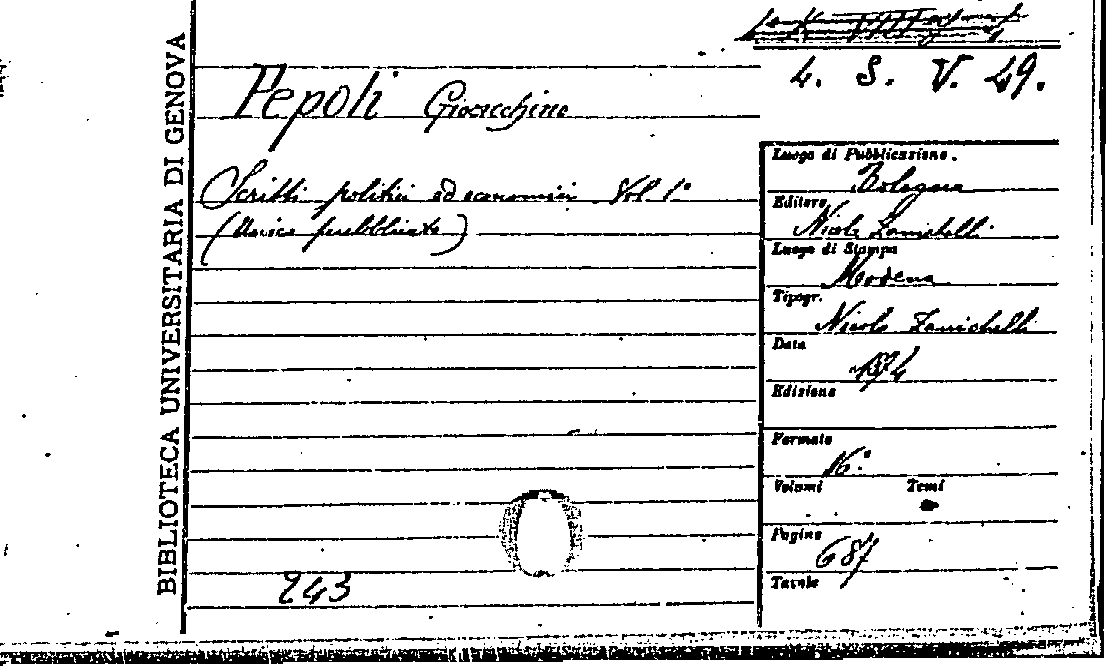 BIBLIOTECA UNIVERSITARIA DI GENOVA
4. S. V. 49.
Pepoli Gioacchino
Scritti politici ed economici Vol 1º
(Unico pubblicato)
Luogo di Pubblicazione.
Bologna
Editore
Nicola Zanichelli
Luogo di Stampa
Modena
Tipogr.
Nicola Zanichelli
Data
1874
Edizione
Formato
16.º
Volumi Tomi
Pagine
687
Tavole
243